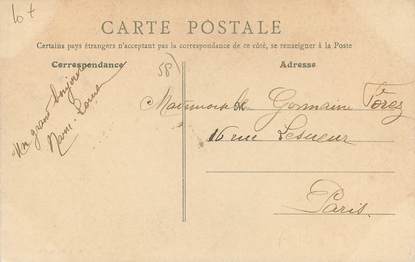 10 +
CARTE POSTALE
Certains pays étrangers n'acceptant pas la correspondance de ce côté, se renseigner à la Poste
Correspondance
58
Un grand bonjour
Adresse
Mademoiselle Germain
16 rue Lesueur
Paris.